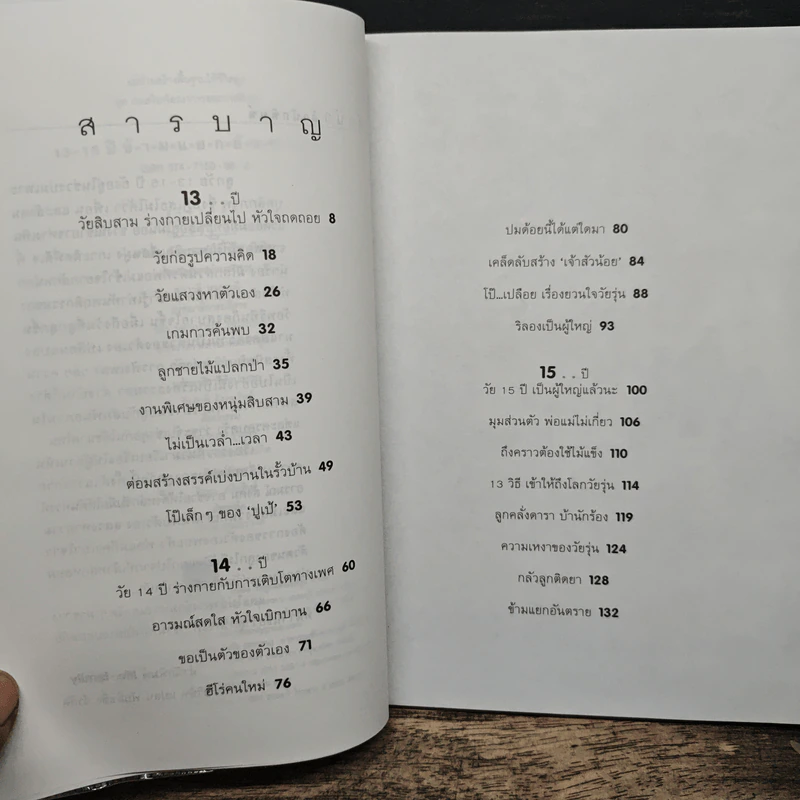 สารบาญ
13 . . ปี
วัยสิบสาม ร่างกายเปลี่ยนไป หัวใจถดถอย 8
วัยก่อรูปความคิด 18
วัยแสวงหาตัวเอง 26
เกมการค้นพบ 32
ลูกชายไม้แปลกป่า 35
งานพิเศษของหนุ่มสิบสาม 39
ไม่เป็นเวล่ำ...เวลา 43
ต่อมสร้างสรรค์เบ่งบานในรั้วบ้าน 49
โป๊เล็กๆ ของ 'ปูเป้' 53
14 . . ปี
วัย 14 ปี ร่างกายกับการเติบโตทางเพศ 60
อารมณ์สดใส หัวใจเบิกบาน 66
ขอเป็นตัวของตัวเอง 71
ฮีโร่คนใหม่ 76
ปมด้อยนี้ได้แต่ใดมา 80
เคล็ดลับสร้าง 'เจ้าสัวน้อย' 84
โป๊...เปลือย เรื่องยวนใจวัยรุ่น 88
ริลองเป็นผู้ใหญ่ 93
15 . . ปี
วัย 15 ปี เป็นผู้ใหญ่แล้วนะ 100
มุมส่วนตัว พ่อแม่ไม่เกี่ยว 106
ถึงคราวต้องใช้ไม้แข็ง 110
13 วิธี เข้าให้ถึงโลกวัยรุ่น 114
ลูกคลั่งดารา บ้านักร้อง 119
ความเหงาของวัยรุ่น 124
กลัวลูกติดยา 128
ข้ามแยกอันตราย 132